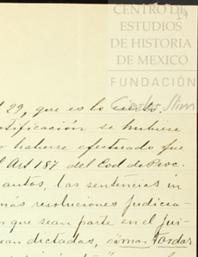 CENTRO DE
ESTUDIOS
DE HISTORIA
DE MEXICO
FUNDACIÓN
Carlos Slim
29, que es la
notificación se hubiere
haberse efectuado que
Art 187 del Cod de Proc.
autos, las sentencias in
más resoluciones judicia
que sean parte en el jui
sean dictadas,